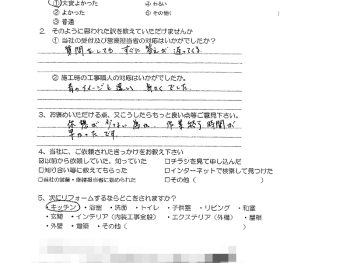 ①大変よかった ④わるい
②よかった ⑤その他(
③普通
2. そのように思われた訳を教えていただけませんか
① 当社の受付及び営業担当者の対応はいかがでしたか？
質問をしても すぐに答えが返ってくる
② 施工時の工事職人の対応はいかがでしたか。
昔のイメージと違い 良くでした
3、お褒めいただける点、又こうしたらもっと良い点等ご意見下さい。
休憩が少ない為か、作業終了時間が
早かったです。
4、当社に、ご依頼されたきっかけをお教え下さい
☑以前から依頼していた、知っていた □チラシを見て申し込んだ
□知り合い等に教えてもらった □インターネットで検索して見つけた
□当社の営業・現場担当者に勧められた □その他（
5、次にリフォームするならどこをされますか？
・キッチン ・浴室 ・洗面 ・トイレ ・子供部屋 ・リビング ・和室
・玄関 ・インテリア（内装工事全般） ・エクステリア（外構） ・屋根
・外壁 ・増築 ・その他（